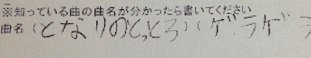 ※知っている曲の曲名が分かったら書いてください
曲名（となりのととろ）（ゲラゲ